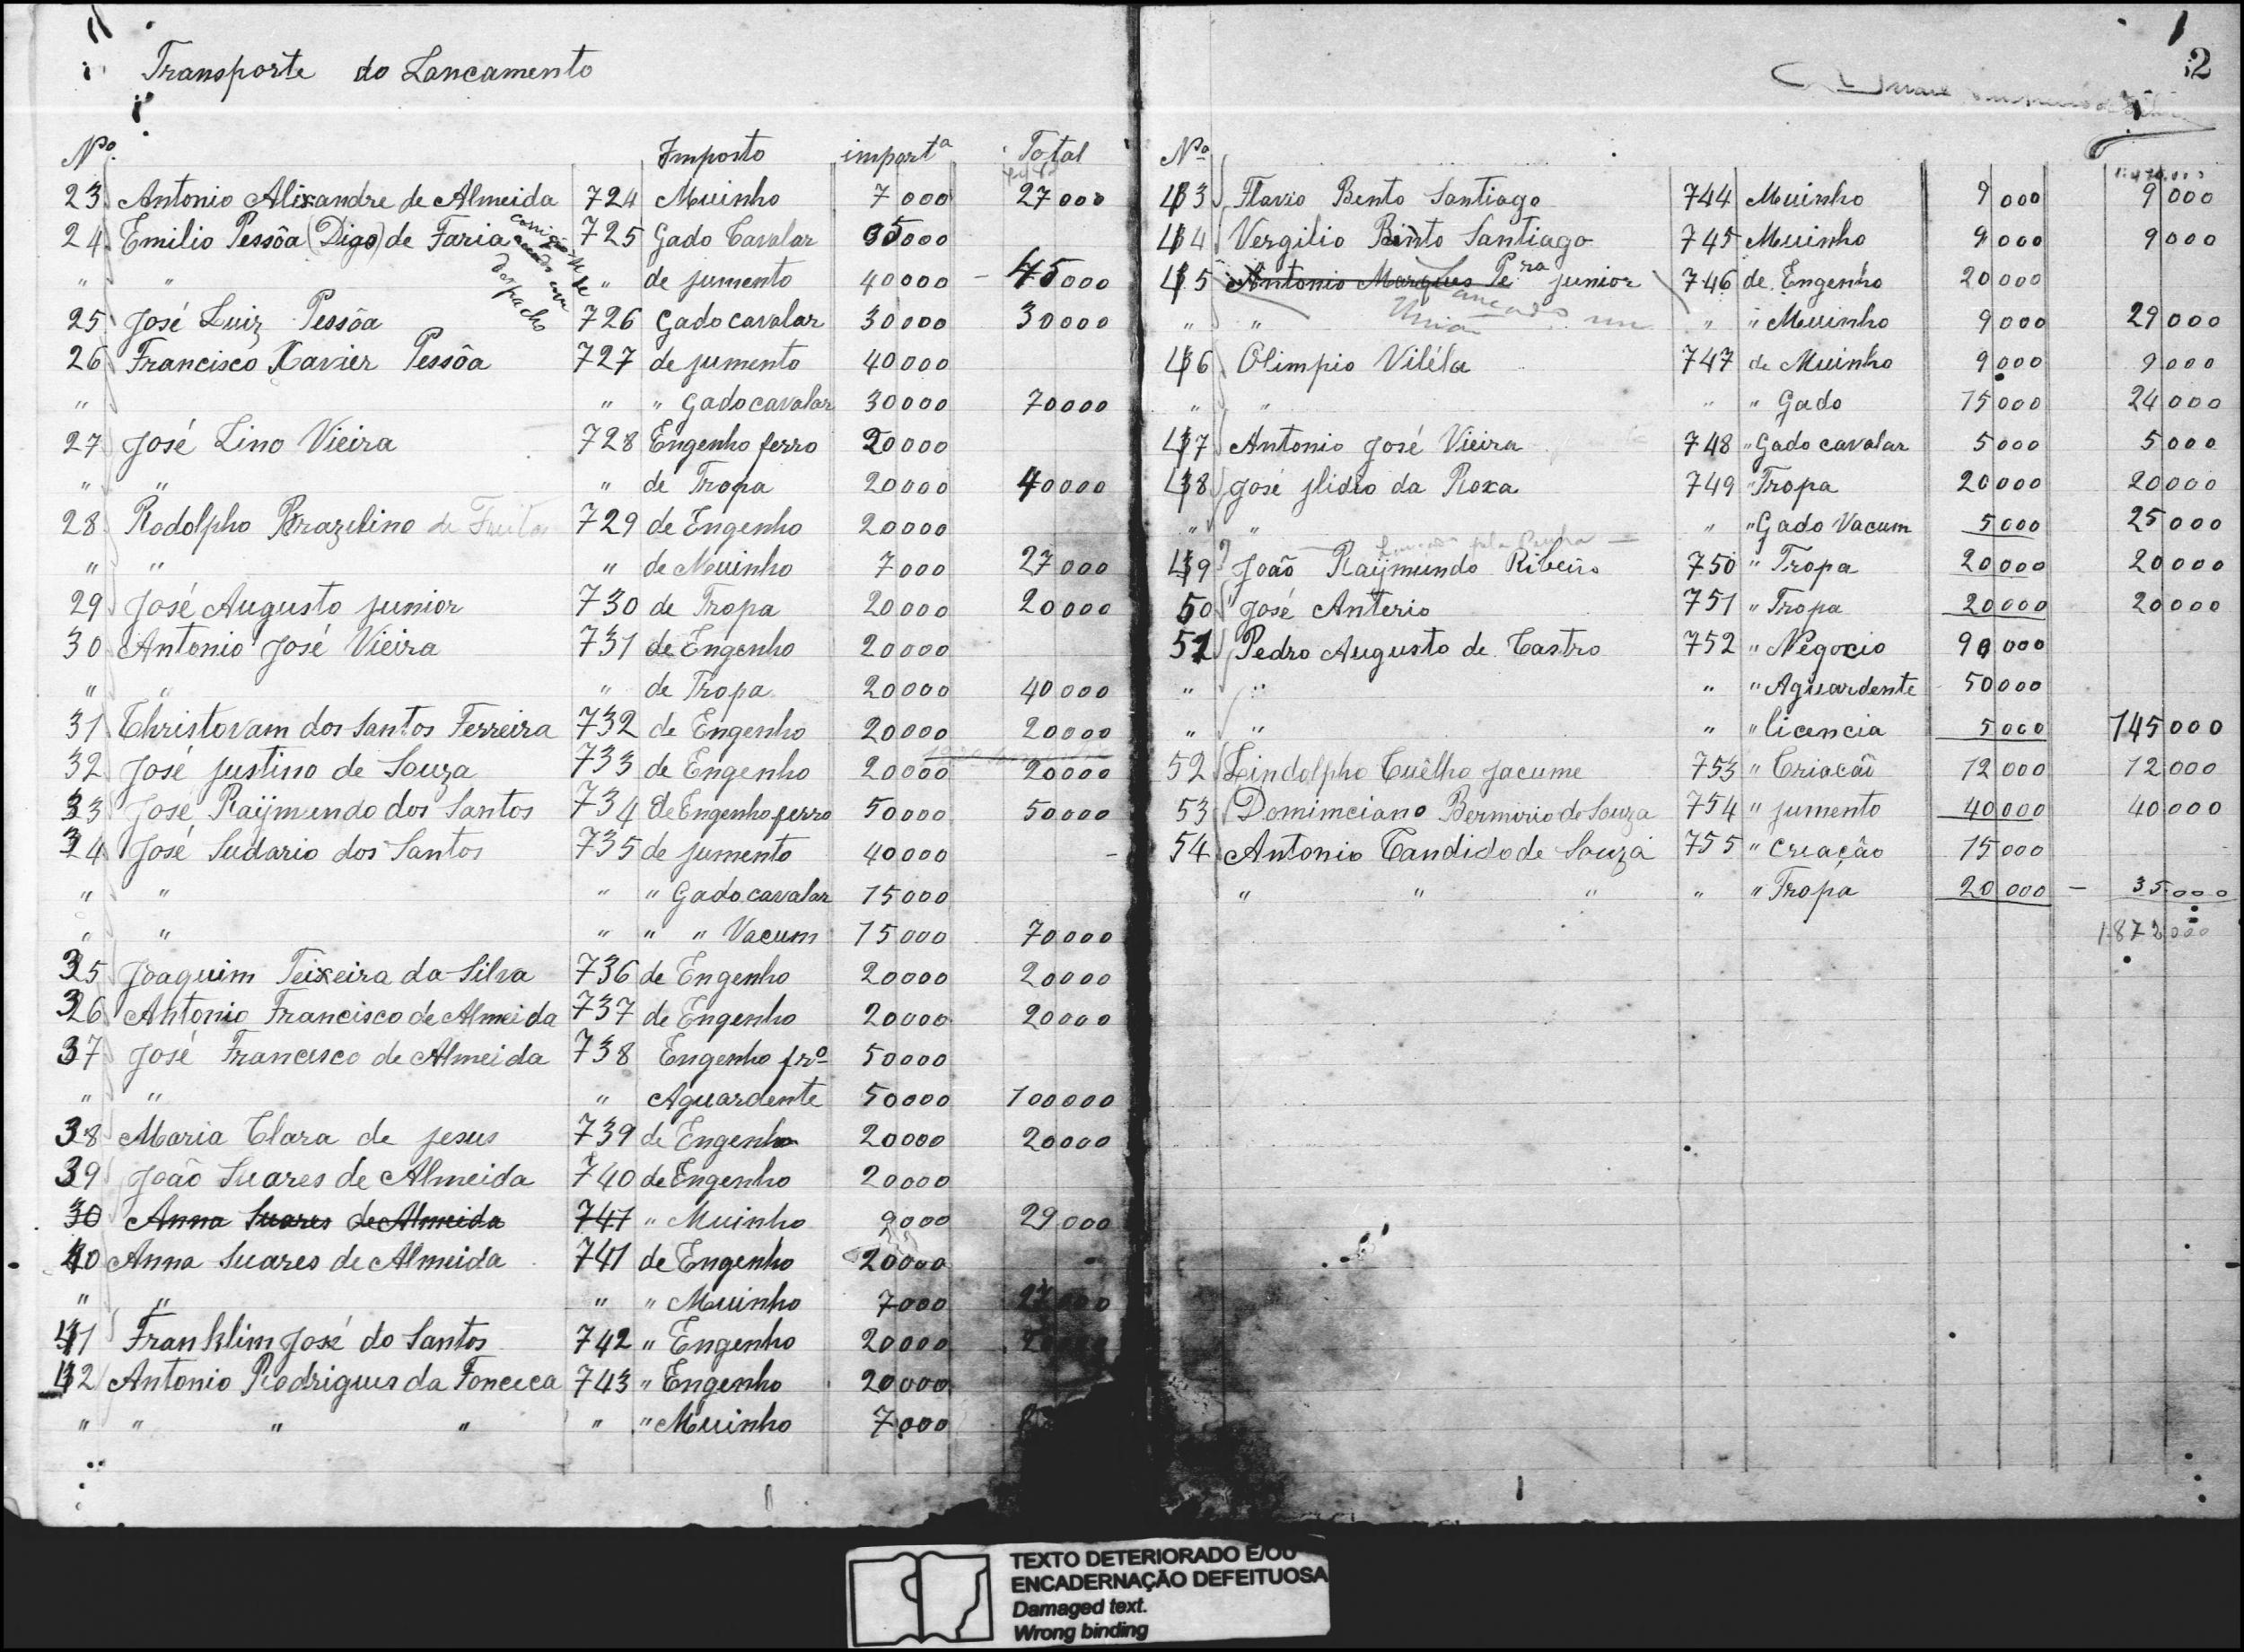 Transporte do Lancamento
Nº Imposto importª Total
23 Antonio Alixandre de Almeida 724 Muinho 7000 27000
24 Emilio Pessôa (Digo) de Faria 725 Gado Cavalar 35000
" " " de jumento 40000 - 45000
despacho
25 José Luiz Pessôa 726 Gado cavalar 30000 30000
26 Francisco Xavier Pessôa 727 de jumento 40000
" " " Gado cavalar 30000 70000
27 José Lino Vieira 728 Engenho ferro 20000
" " " de Tropa 20000 40000
28 Rodolpho Brazilino de Freitas 729 de Engenho 20000
" " " de Muinho 7000 27000
29 José Augusto junior 730 de Tropa 20000 20000
30 Antonio José Vieira 731 de Engenho 20000
" " " de Tropa 20000 40000
31 Christovam dos Santos Ferreira 732 de Engenho 20000 20000
32 José justino de Souza 733 de Engenho 20000 20000
33 José Raÿmundo dos Santos 734 de Engenho ferro 50000 50000
34 José Sudario dos Santos 735 de jumento 40000 -
" " " " Gado cavalar 15000
" " " " " Vacum 15000 70000
35 Joaquim Teixeira da Silva 736 de Engenho 20000 20000
36 Antonio Francisco de Almeida 737 de Engenho 20000 20000
37 José Francisco de Almeida 738 Engenho frº 50000
" " " Aguardente 50000 100000
38 Maria Clara de jesus 739 de Engenho 20000 20000
39 João Suares de Almeida 740 de Engenho 20000
30 Anna Suares de Almeida 741 " Muinho 9000 29000
40 Anna Suares de Almeida 741 de Engenho 20000
" " " " Muinho 7000 27000
41 Franklim José do Santos 742 " Engenho 20000
42 Antonio Rodrigues da Fonceca 743 " Engenho 20000
" " " " " " Muinho 7000
2
Nº
43 Flavio Bento Santiago 744 Muinho 9000 9000
44 Vergilio Bento Santiago 745 Muinho 9000 9000
45 Antonio Marques Peʳᵃ junior 746 de Engenho 20000
" " " " Muinho 9000 29000
46 Olimpio Viléla 747 de Muinho 9000 9000
" " " " Gado 15000 24000
47 Antonio José Vieira 748 " Gado cavalar 5000 5000
48 José jlidio da Roxa 749 " Tropa 20000 20000
" " " " Gado Vacum 5000 25000
49 João Raÿmundo Ribeiro 750 " Tropa 20000 20000
50 José Anterio 751 " Tropa 20000 20000
51 Pedro Augusto de Castro 752 " Negocio 90000
" " " " Aguardente 50000
" " " " licencia 5000 145000
52 Lindolpho Cuêlho Jacume 753 " Criacão 12000 12000
53 Domimciano Bermirio de Souza 754 " jumento 40000 40000
54 Antonio Candido de Souza 755 " Creação 15000
" " " " " Tropa 20000 - 35000
1872000
TEXTO DETERIORADO E/OU
ENCADERNAÇÃO DEFEITUOSA
Damaged text.
Wrong binding